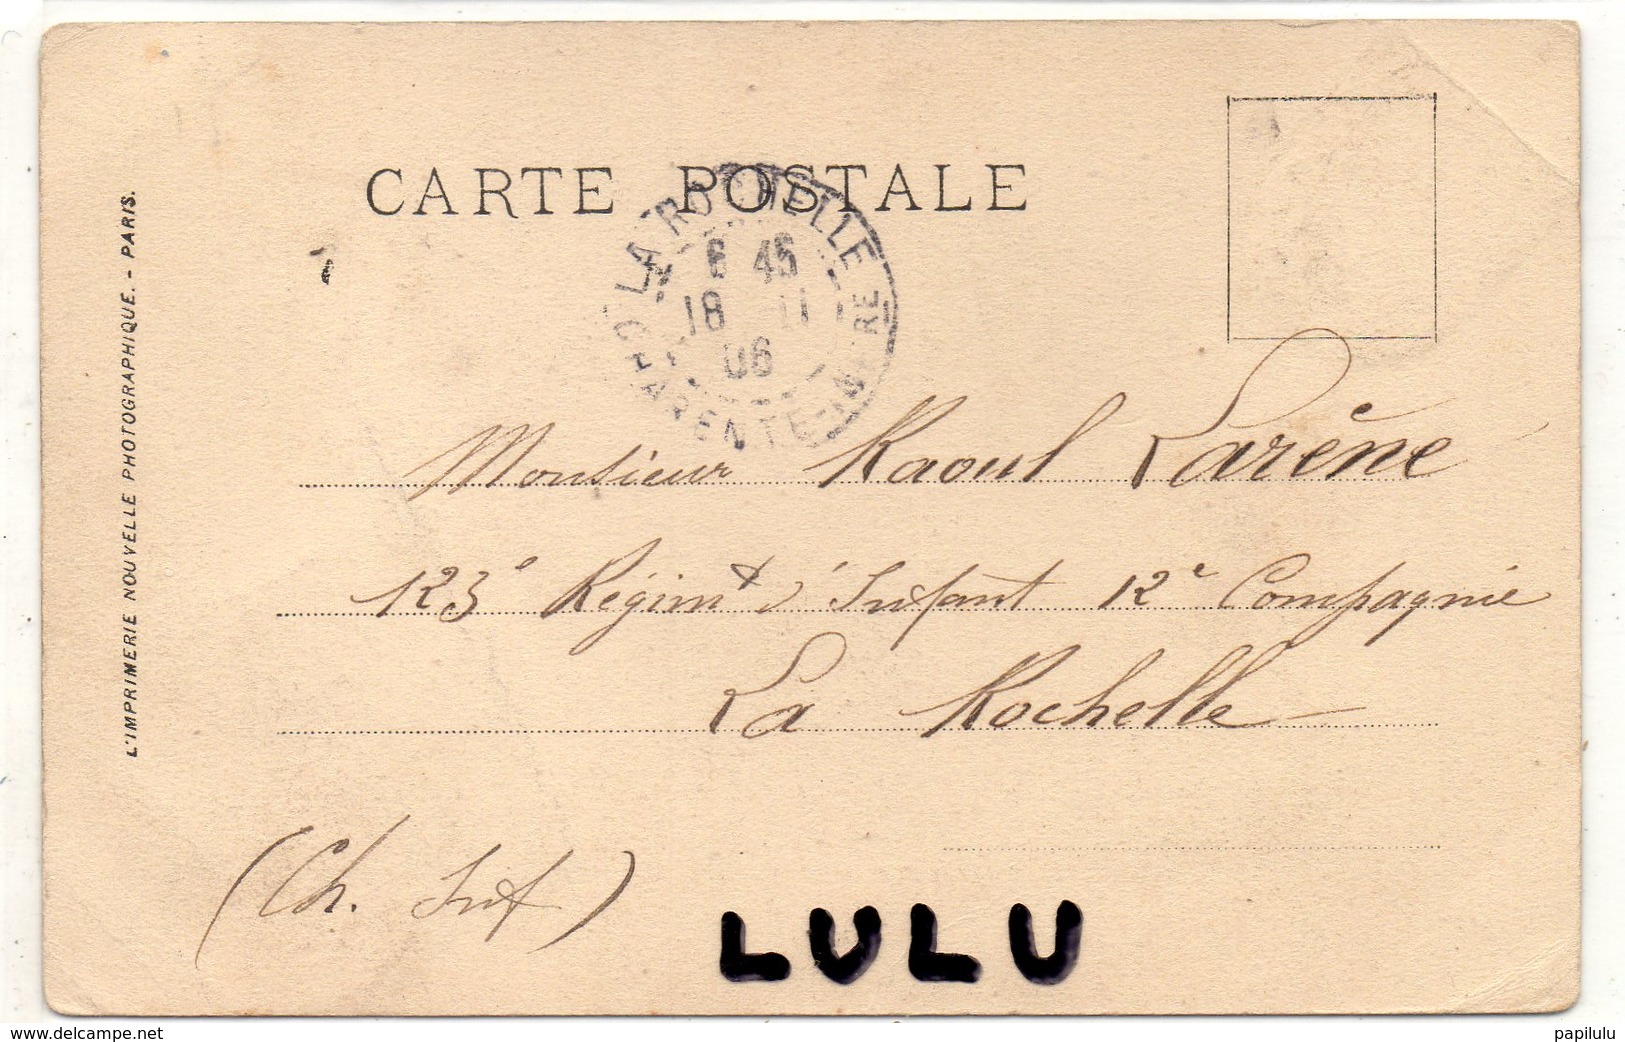 CARTE POSTALE
L'IMPRIMERIE NOUVELLE PHOTOGRAPHIQUE. - PARIS.
LA ROCHELLE
6 45
18 11
06
CHARENTE-INFRE
Monsieur Raoul Larène
123e Régimt d'Infant 12e Compagnie
La Rochelle
(Ch. Inf)
LULU
www.delcampe.net
papilulu